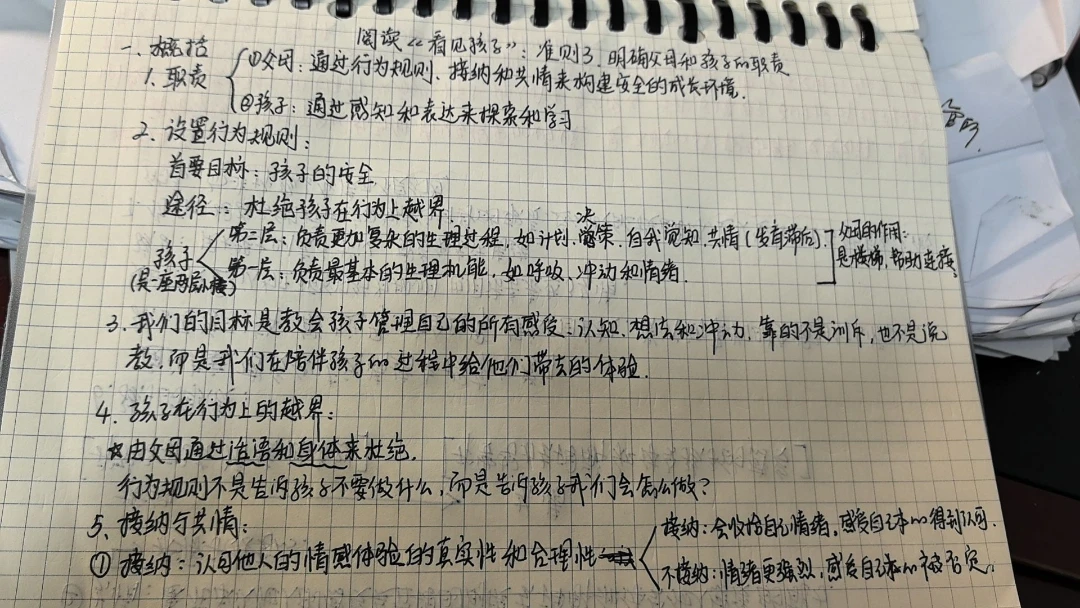 阅读《看见孩子》：准则3.明确父母和孩子的职责
一、概括
1.职责
①父母：通过行为规则、接纳和共情来构建安全的成长环境.
②孩子：通过感知和表达来探索和学习
2、设置行为规则：
首要目标：孩子的安全
途径：杜绝孩子在行为上越界.
孩子
(是一座两层小楼)
第二层：负责更加复杂的生理过程，如计划、决策、自我觉知、共情(发育滞后).
第一层：负责最基本的生理机能，如呼吸、冲动和情绪.
父母的作用：
是楼梯，帮助连接.
3、我们的目标是教会孩子管理自己的所有感受、认知、想法和冲动，靠的不是训斥，也不是说
教，而是我们在陪伴孩子的过程中给他们带去的体验.
4、孩子在行为上的越界：
☆由父母通过话语和身体来杜绝.
行为规则不是告诉孩子不要做什么，而是告诉孩子我们会怎么做？
5、接纳与共情：
①接纳：认可他人的情感体验的真实性和合理性
接纳：会收拾自己情绪，感受自己本心得到认可.
不接纳：情绪更强烈，感受自己本心被否定.